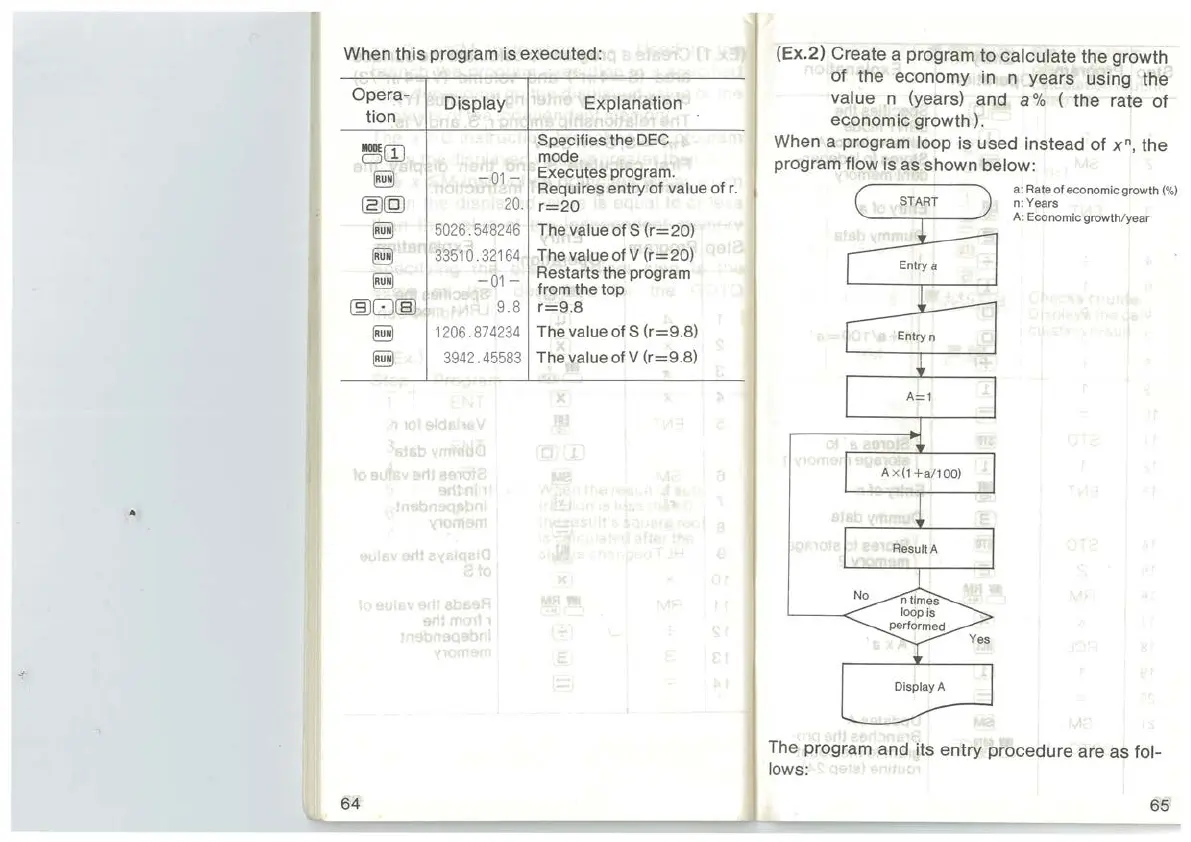 When this program is executed:
Opera-
tion
Display
Explanation
MODE 1
Specifies the DEC
mode
RUN
—01—
Executes program.
Requires entry of value of r.
2 0
20.
r=20
RUN
5026.548246
The value of S (r=20)
RUN
33510.32164
The value of V (r=20)
RUN
—01—
Restarts the program
from the top
9 · 8
9.8
r=9.8
RUN
1206.874234
The value of S (r=9.8)
RUN
3942.45583
The value of V (r=9.8)
64
(Ex.2) Create a program to calculate the growth
of the economy in n years using the
value n (years) and a% ( the rate of
economic growth).
When a program loop is used instead of xⁿ, the
program flow is as shown below:
START
a: Rate of economic growth (%)
n: Years
A: Economic growth/year
Entry a
Entry n
A=1
A×(1+a/100)
Result A
No
n times
loop is
performed
Yes
Display A
The program and its entry procedure are as fol-
lows:
65